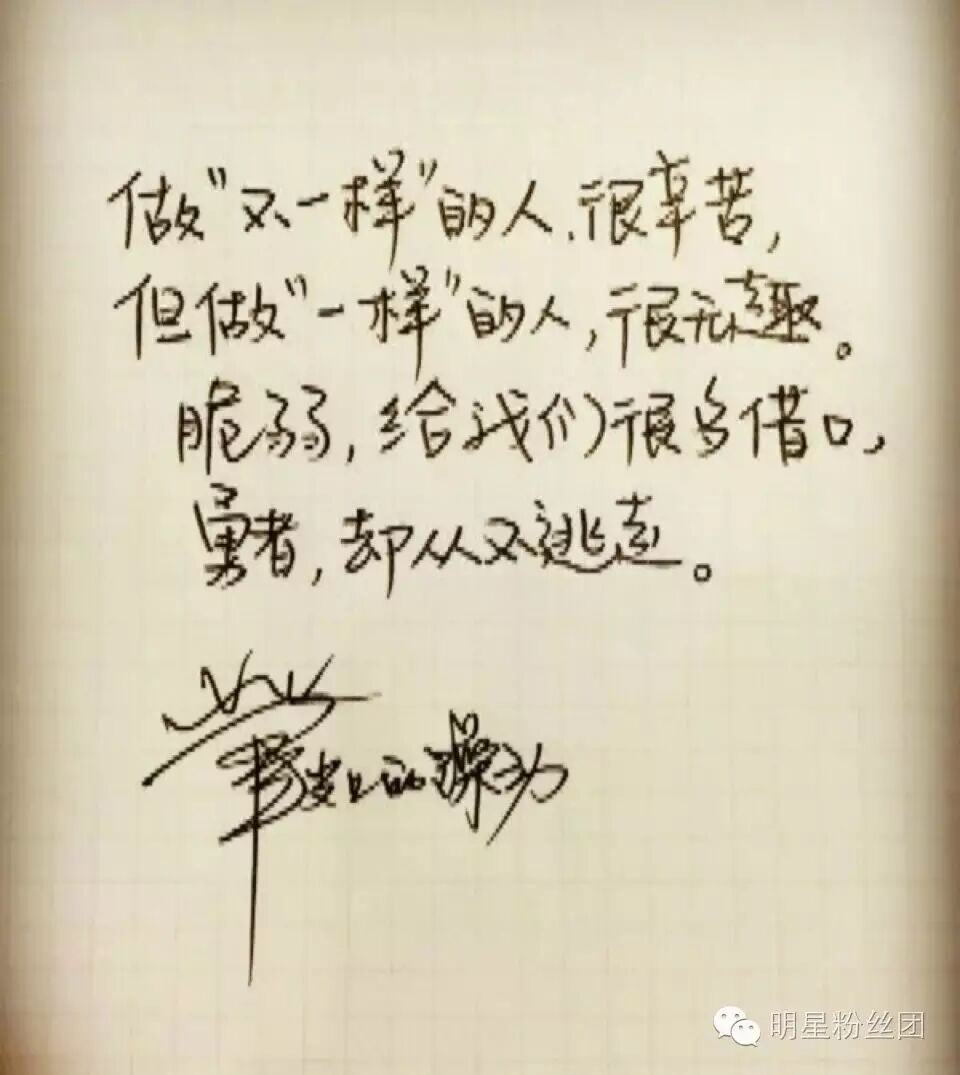 做“不一样”的人.很辛苦,
但做“一样”的人,很无趣。
脆弱,给我们很多借口,
勇者,却从不逃走。
的躁动
明星粉丝团